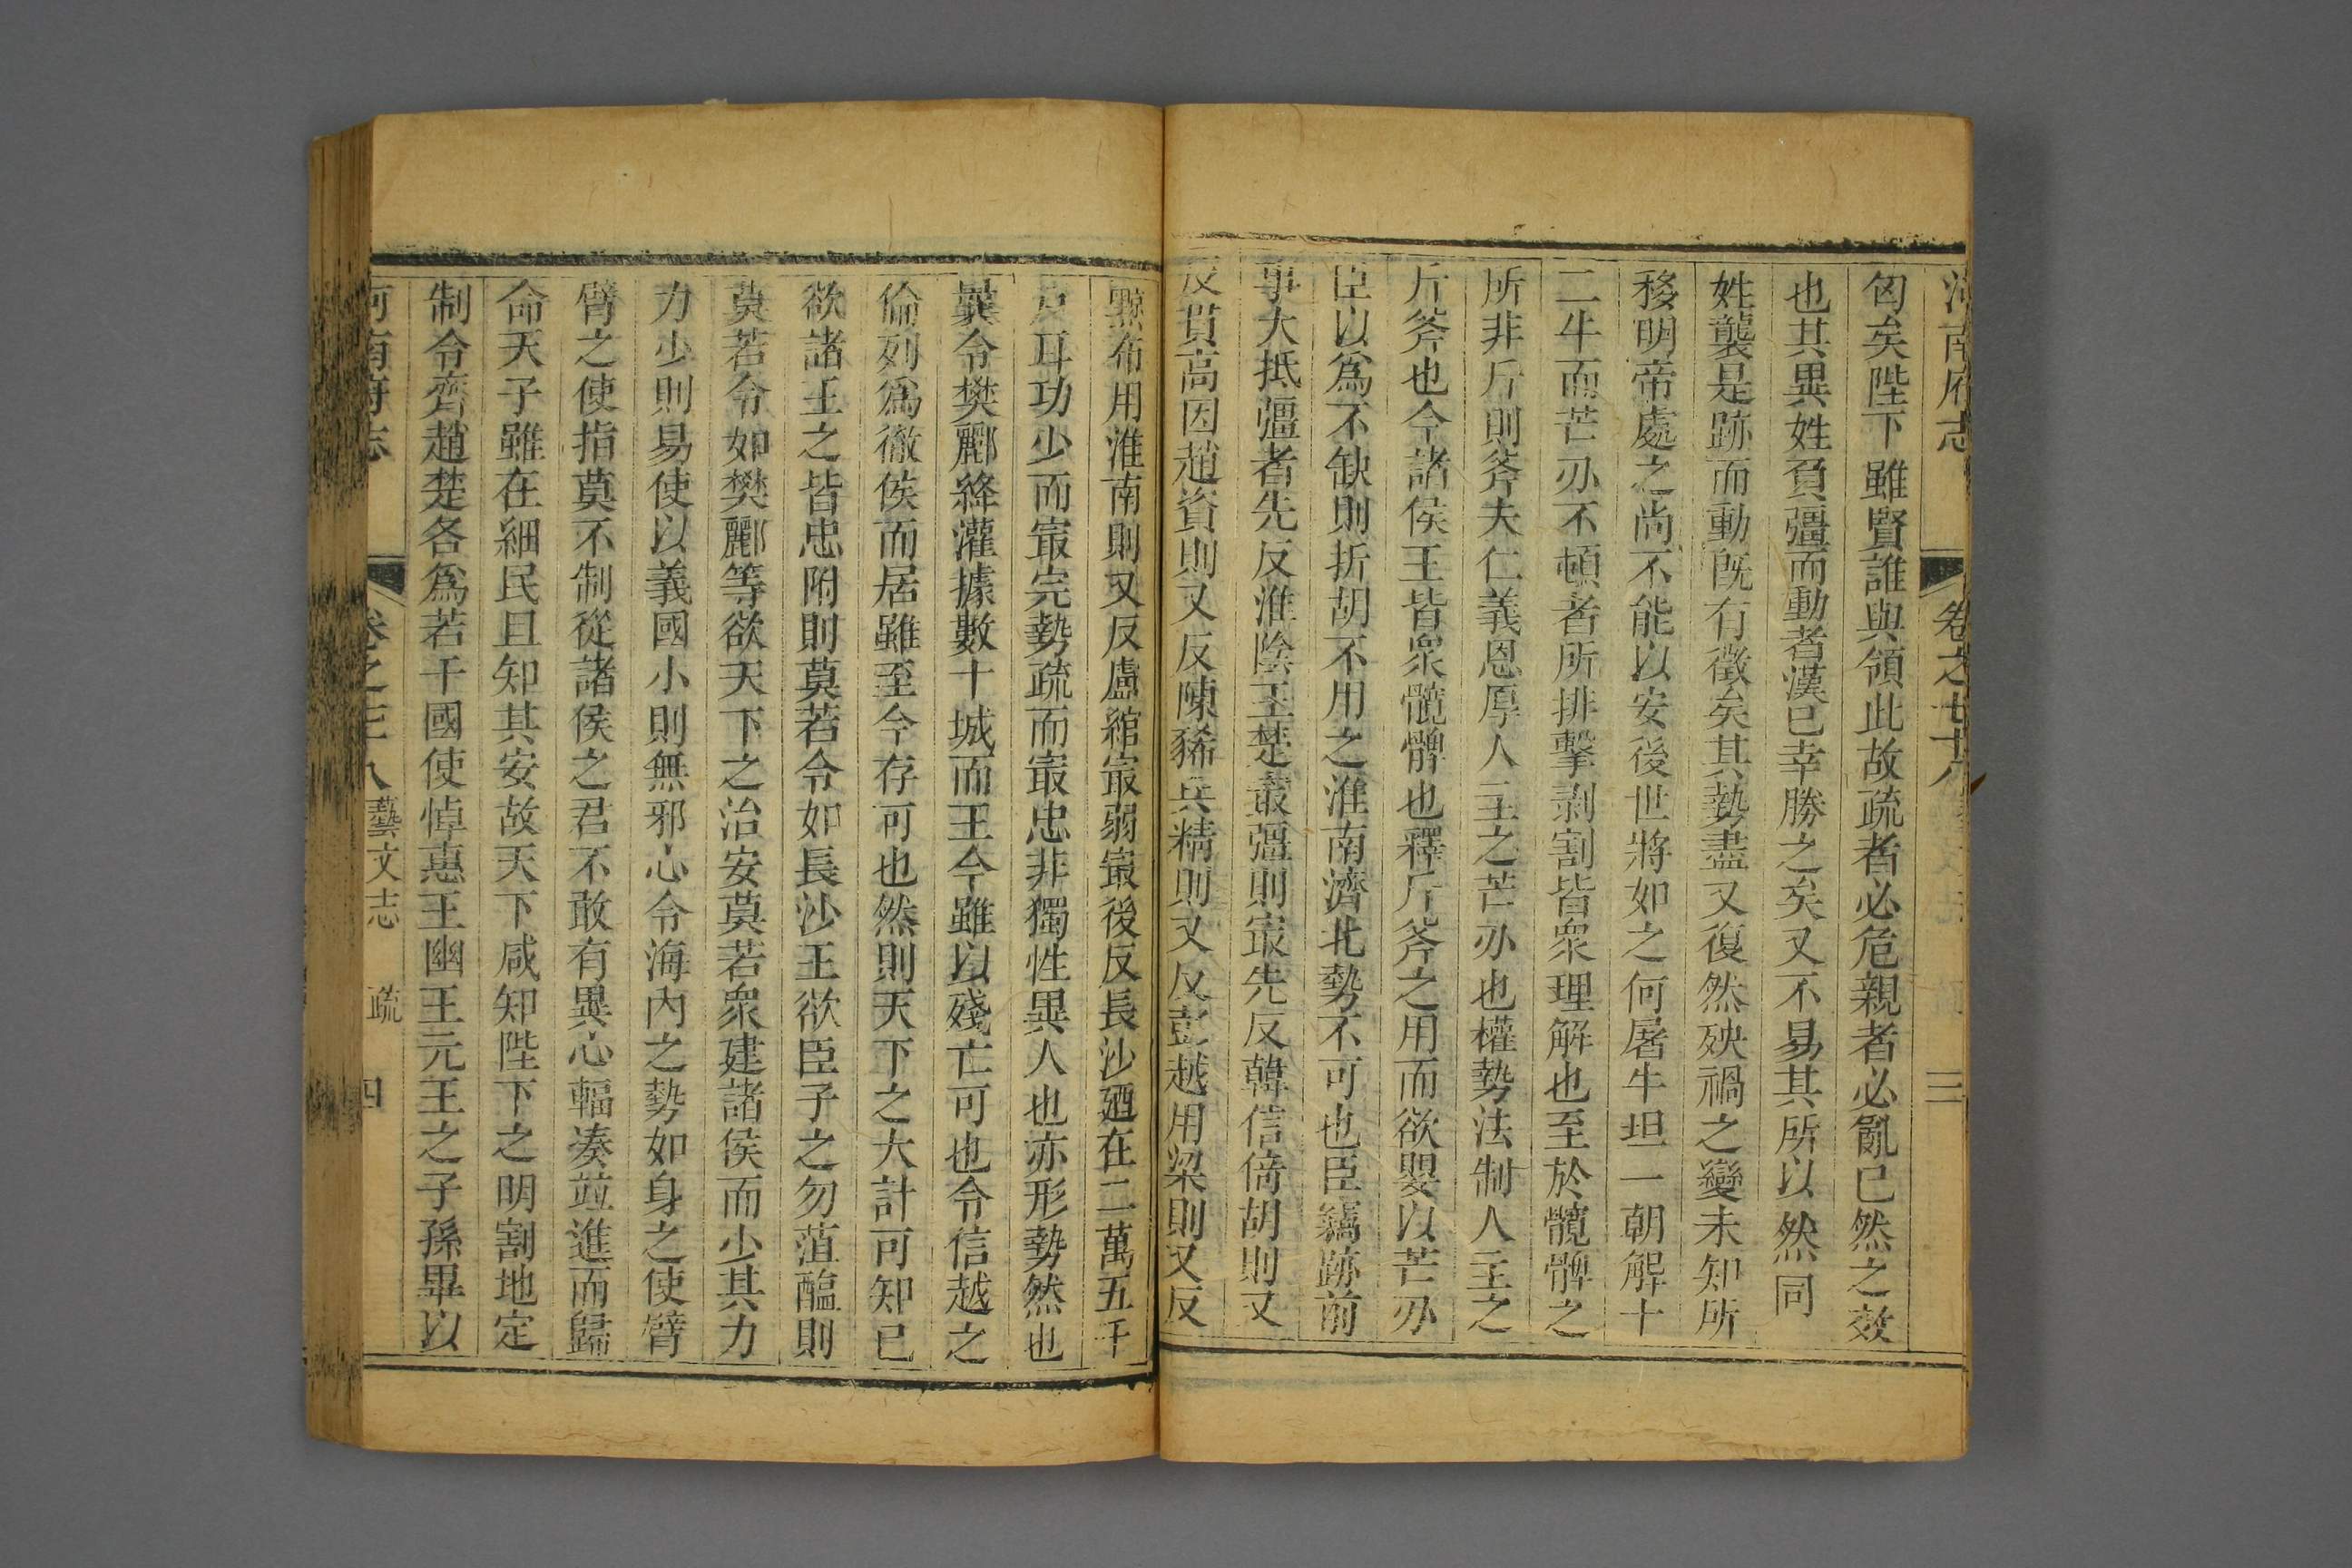 河南府志 卷之廿六 三
匈矣陛下雖賢誰與領此故疏者必危親者必亂已然之效
也其異姓負彊而動者漢已幸勝之矣又不易其所以然同
姓襲是跡而動既有徵矣其勢盡又復然殃禍之變未知所
移明帝處之尚不能以安後世將如之何屠牛坦一朝解十
二牛而芒刅不頓者所排擊剥割皆衆理解也至於髖髀之
所非斤則斧夫仁義恩厚人主之芒刅也權勢法制人主之
斤斧也今諸侯王皆衆髖髀也釋斤斧之用而欲嬰以芒刅
臣以爲不缺則折胡不用之淮南濟北勢不可也臣竊跡前
事大抵彊者先反淮陰王楚最彊則㝡先反韓信倚胡則又
反貫高因趙資則又反陳豨兵精則又反彭越用梁則又反
黥布用淮南則又反盧綰㝡弱㝡後反長沙廼在二萬五千
戸耳功少而㝡完勢疏而㝡忠非獨性異人也亦形勢然也
曩令樊酈絳灌據數十城而王今雖以殘亡可也令信越之
倫列爲徹侯而居雖至今存可也然則天下之大計可知已
欲諸王之皆忠附則莫若令如長沙王欲臣子之勿菹醢則
莫若令如樊酈等欲天下之治安莫若衆建諸侯而少其力
力少則易使以義國小則無邪心令海內之勢如身之使臂
臂之使指莫不制從諸侯之君不敢有異心輻湊竝進而歸
命天子雖在細民且知其安故天下咸知陛下之明割地定
制令齊趙楚各爲若干國使悼惠王幽王元王之子孫畢以
河南府志 卷之 八 藝文志 疏 四